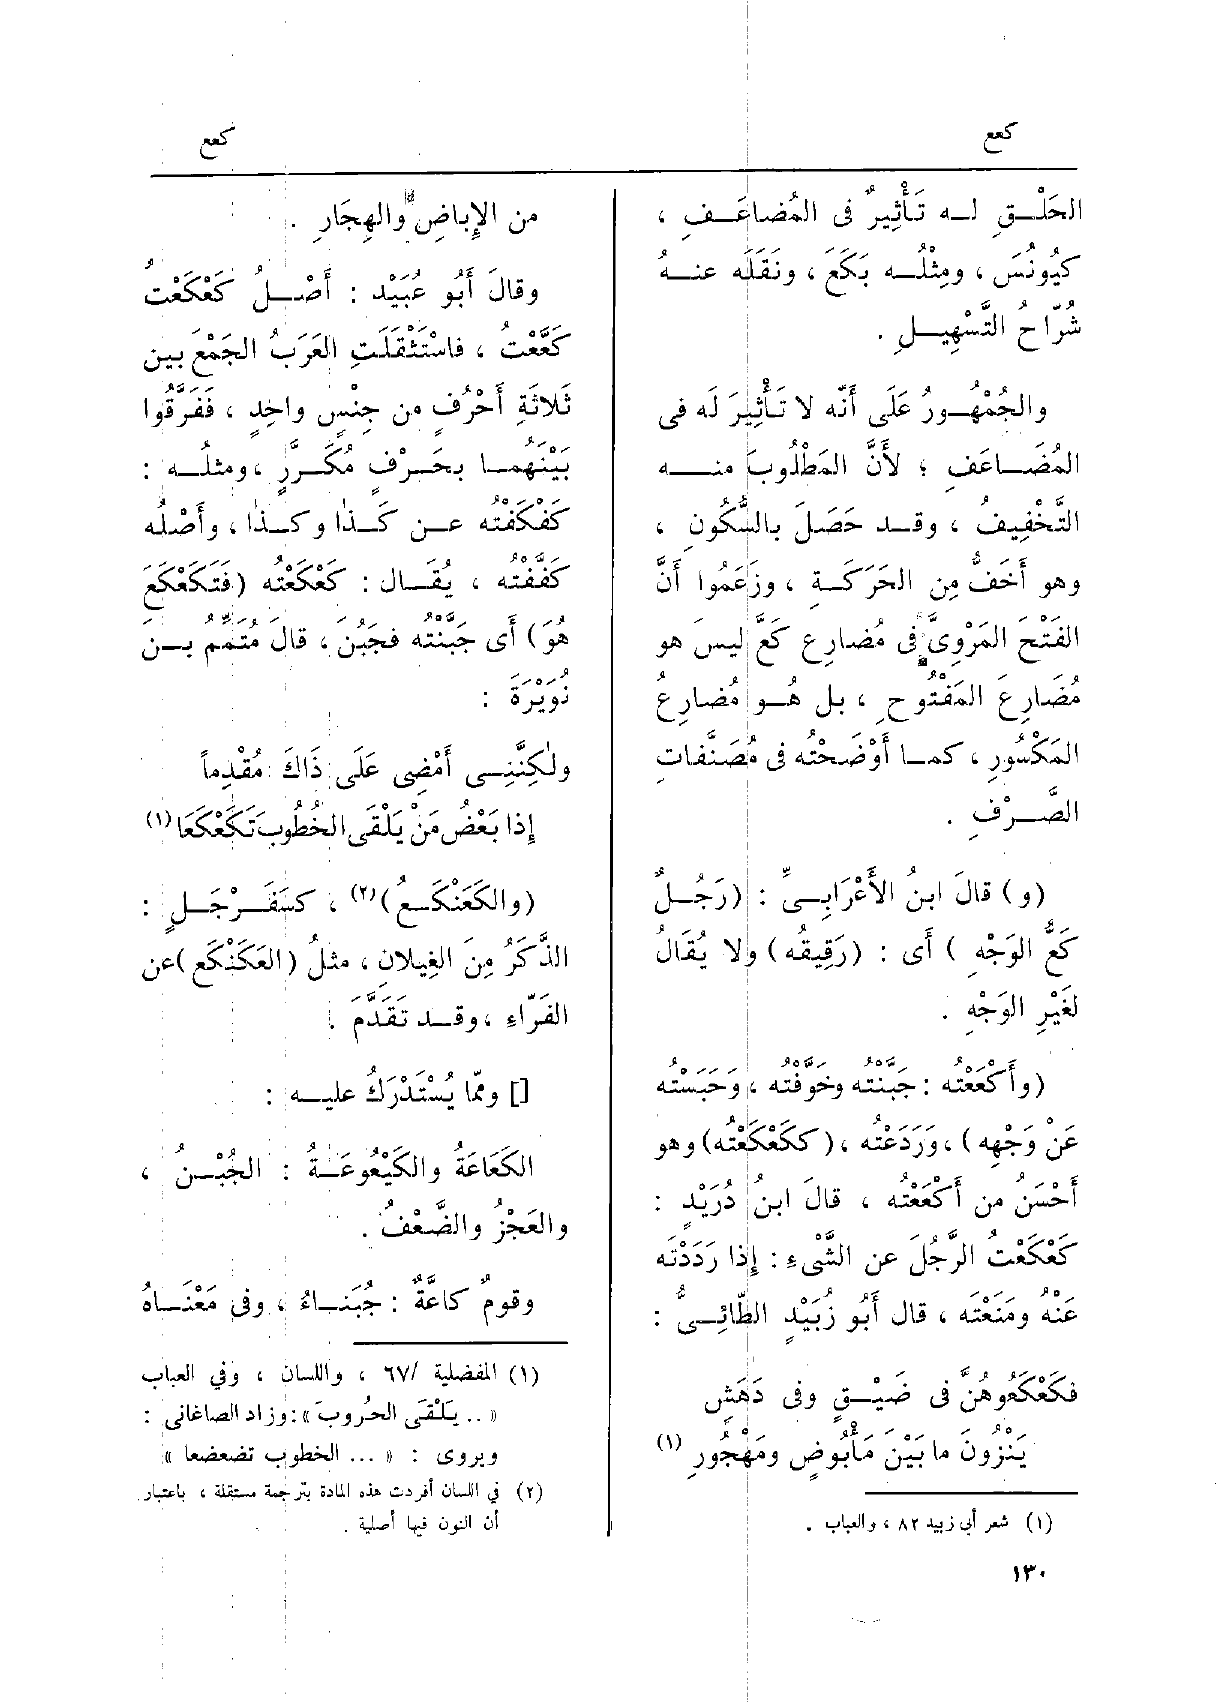 كعع
كعع
الحَلْقِ له تَأْثِيرٌ فى المُضاعَفِ ،
كيُونُسَ ، ومِثْلُه بَكَعَ ، ونَقَلَه عنهُ
شُرّاحُ التَّسْهِيلِ .
والجُمْهُورُ عَلَى أَنَّه لا تَأْثِيرَ لَه فى
المُضَاعَفِ ؛ لأَنَّ المَطْلُوبَ منه
التَّخْفِيفُ ، وقد حَصَلَ بالسُّكُونِ ،
وهو أَخَفُّ مِن الحَرَكَةِ ، وزَعَمُوا أَنَّ
الفَتْحَ المَرْوِىَّ فى مُضارِعِ كَعَّ ليسَ هو
مُضَارِعَ المَفْتُوحِ ، بل هُو مُضارِعُ
المَكْسُورِ ، كما أَوْضَحْتُه فى مُصَنَّفاتِ
الصَّرْفِ .
(و) قالَ ابنُ الأَعْرابِىِّ : (رَجُلٌ
كَعُّ الوَجْهِ ) أَى : (رَقِيقُه ) ولا يُقَالُ
لغَيْرِ الوَجْهِ .
(وأَكْعَعْتُه : جَبَّنْتُه وخَوَّفْتُه ، وَحَبَسْتُه
عَنْ وَجْهِه ) ، وَرَدَعْتُه ، (ككَعْكَعْتُه) وهو
أَحْسَنُ من أَكْعَعْتُه ، قالَ ابنُ دُرَيْدٍ :
كَعْكَعْتُ الرَّجُلَ عن الشَّىْءِ : إِذا رَدَدْتَه
عَنْهُ ومَنَعْتَه ، قال أَبُو زُبَيْدٍ الطّائِىُّ :
فكَعْكَعُوهُنَّ فى ضَيْقٍ وفى دَهَشٍ
يَنْزُونَ ما بَيْنَ مَأْبُوضٍ ومَهْجُورِ (١)
(١) شعر أبي زبيد ٨٢ ، والعباب .
١٣٠
من الإِباضِ والهِجَارِ .
وقالَ أَبُو عُبَيْدٍ : أَصْلُ كَعْكَعْتُ
كَعَّعْتُ ، فاسْتَثْقَلَتِ العَرَبُ الجَمْعَ بين
ثَلاثَةِ أَحْرُفٍ من جِنْسٍ واحِدٍ ، فَفَرَّقُوا
بَيْنَهُما بحَرْفٍ مُكَرَّرٍ ، ومثلُه :
كَفْكَفْتُه عن كَذا وكذا ، وأَصْلُه
كَفَّفْتُه ، يُقَال : كَعْكَعْتُه (فتَكَعْكَعَ
هُوَ) أَى جَبَّنْتُه فجَبُنَ ، قالَ مُتَمِّمُ بنُ
نُوَيْرَةَ :
ولٰكِنَّنِى أَمْضِى عَلَى ذَاكَ مُقْدِماً
إِذا بَعْضُ مَنْ يَلْقَى الخُطُوبَ تَكَعْكَعَا (١)
(والكَعَنْكَعُ) (٢) ، كسَفَرْجَلٍ :
الذَّكَرُ مِنَ الغِيلانِ ، مثلُ (العَكَنْكَعِ )عن
الفَرّاءِ ، وقد تَقَدَّمَ .
[] وممّا يُسْتَدْرَكُ عليه :
الكَعَاعَةُ والكَيْعُوعَةُ : الجُبْنُ ،
والعَجْزُ والضَّعْفُ .
وقومٌ كاعَّةٌ : جُبَناءُ ، وفى مَعْنَاهُ
(١) المفضلية /٦٧ ، واللسان ، وفي العباب
« .. يَلْقَى الحُروبَ »: وزاد الصاغانى :
ويروى : « ... الخطوب تضعضعا »
(٢) في اللسان أفردت هذه المادة بترجمة مستقلة ، باعتبار
أن النون فيها أصلية .